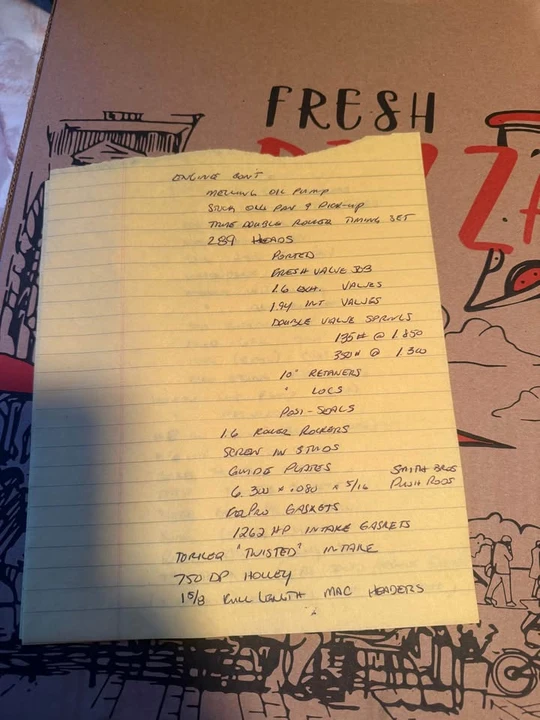 FRESH
PIZZA
ENGINE CON'T
MELLING OIL PUMP
STOCK OIL PAN & PICK-UP
TRUE DOUBLE ROLLER TIMING SET
289 HEADS
PORTED
FRESH VALVE JOB
1.6 EXH. VALVES
1.94 INT VALVES
DOUBLE VALVE SPRINGS
135# @ 1.850
350# @ 1.300
10° RETANERS
" LOCS
POSI-SEALS
1.6 ROLLER ROCKERS
SCREW IN STUDS
GUIDE PLATES
6.300 x .080 x 5/16 SMITH BROS PUSH RODS
FELPRO GASKETS
1262 HP INTAKE GASKETS
TORKER "TWISTED" INTAKE
750 DP HOLLEY
1 5/8 FULL LENGTH MAC HEADERS